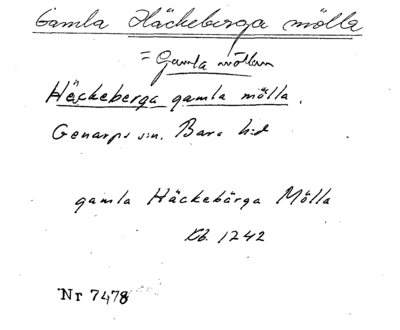 Gamla Häckeberga mölla
= Gamla möllan
Häckeberga gamla mölla.
Genarps sn. Bara hd
gamla Häckebärga Mölla
Kb. 1242
Nr 7478